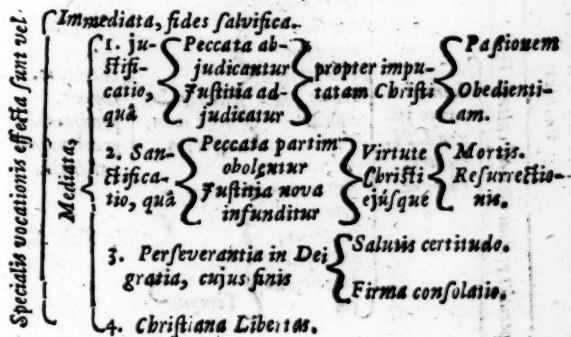 Specialis vocationis effecta sunt vel
Immediata, fides salvifica.
Mediata,
1. ju-
stifi-
catio,
quâ
Peccata ab-
judicantur
Justitia ad-
judicatur
propter impu-
tatam Christi
Passionem
Obedienti-
am.
2. San-
ctifica-
tio, quâ
Peccata partim
obolentur
Justitia nova
infunditur
Virtute
Christi
ejúsque
Mortis.
Resurrectio-
nis.
3. Perseverantia in Dei
gratia, cujus finis
Salutis certitudo.
Firma consolatio.
4. Christiana Libertas.